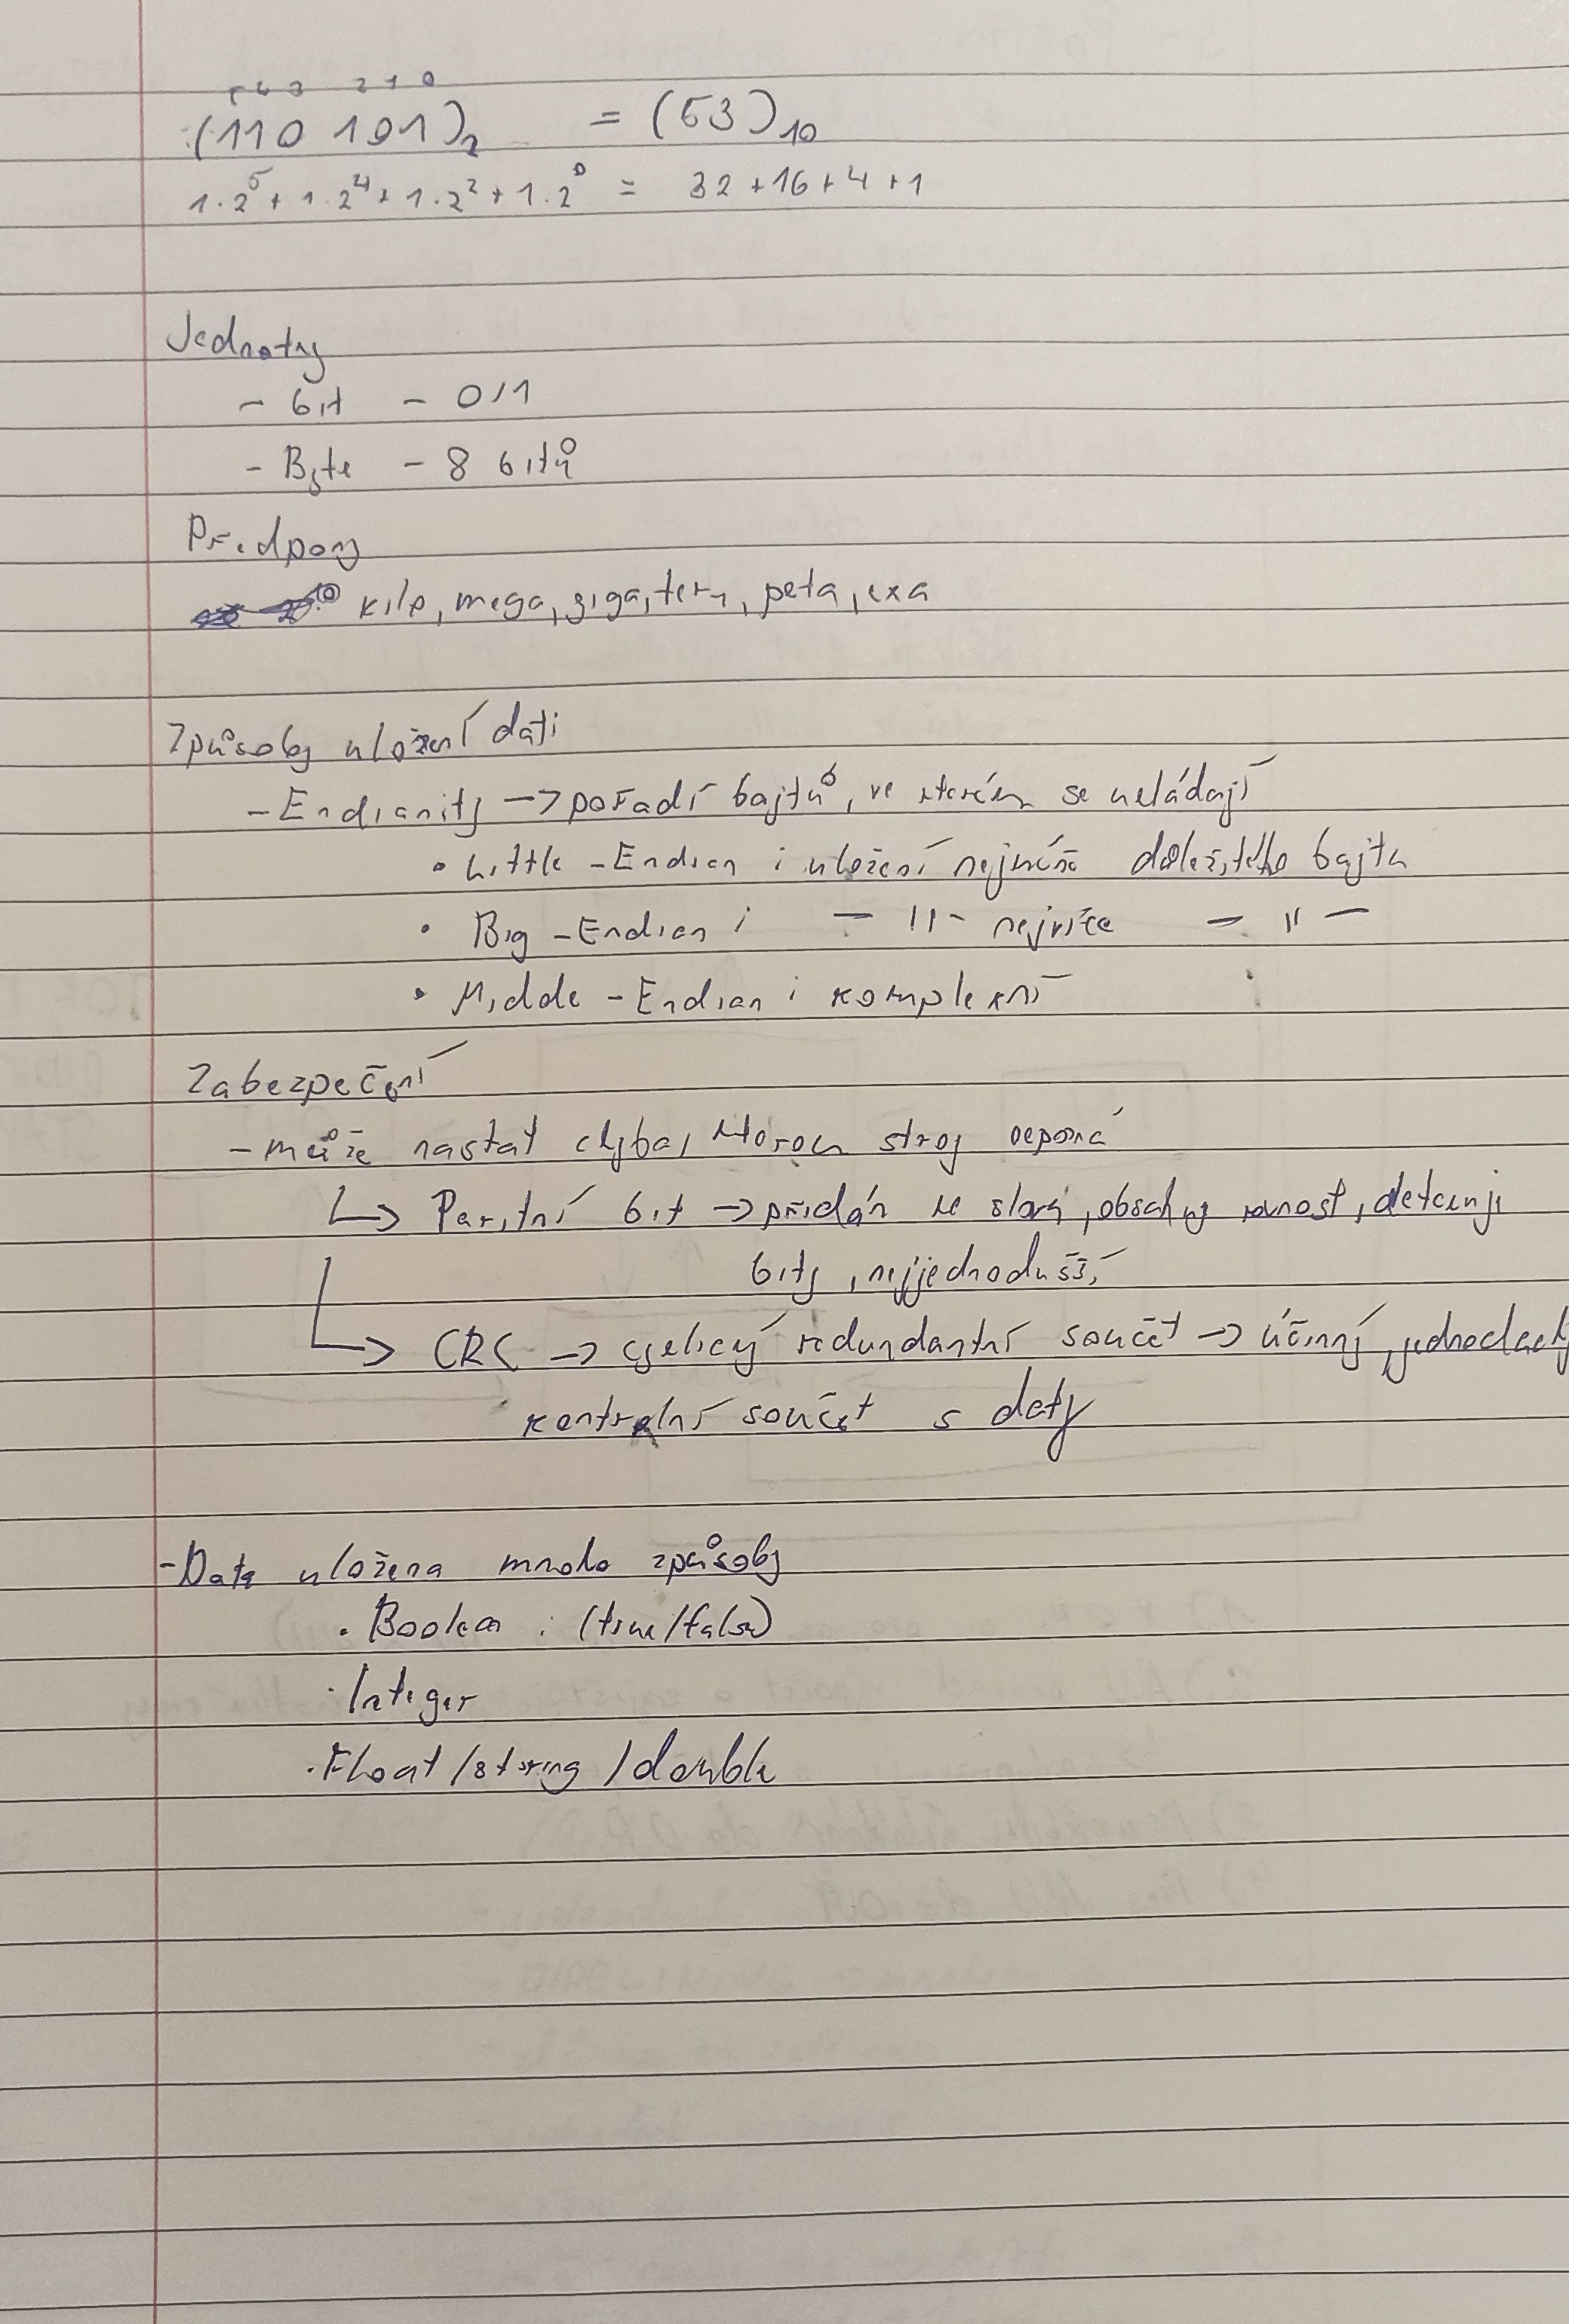 5 4 3 2 1 0
(110 101)₂ = (53)₁₀
1·2⁵ + 1·2⁴ + 1·2² + 1·2⁰ = 32 + 16 + 4 + 1
Jednotky
- bit - 0/1
- Byte - 8 bitů
Předpony
kilo, mega, giga, tera, peta, exa
Způsoby uložení dat
- Endianity -> pořadí bajtů, ve kterém se ukládají
• Little - Endian ; uložení nejméně důležitého bajtu
• Big - Endian ; - || - nejvíce - || -
• Midde - Endian ; komplexní
Zabezpečení
- může nastat chyba, kterou stroj nepozná
↳ Paritní bit -> přidán ke slovu, obsahuje rovnost, detekuje
bity, nejjednodušší
↳ CRC -> cyklický redundantní součet -> účinný, jednoduchý
kontrolní součet s daty
- Data uložena mnoho způsoby
• Boolean : (true/false)
• Integer
• Float / string / double